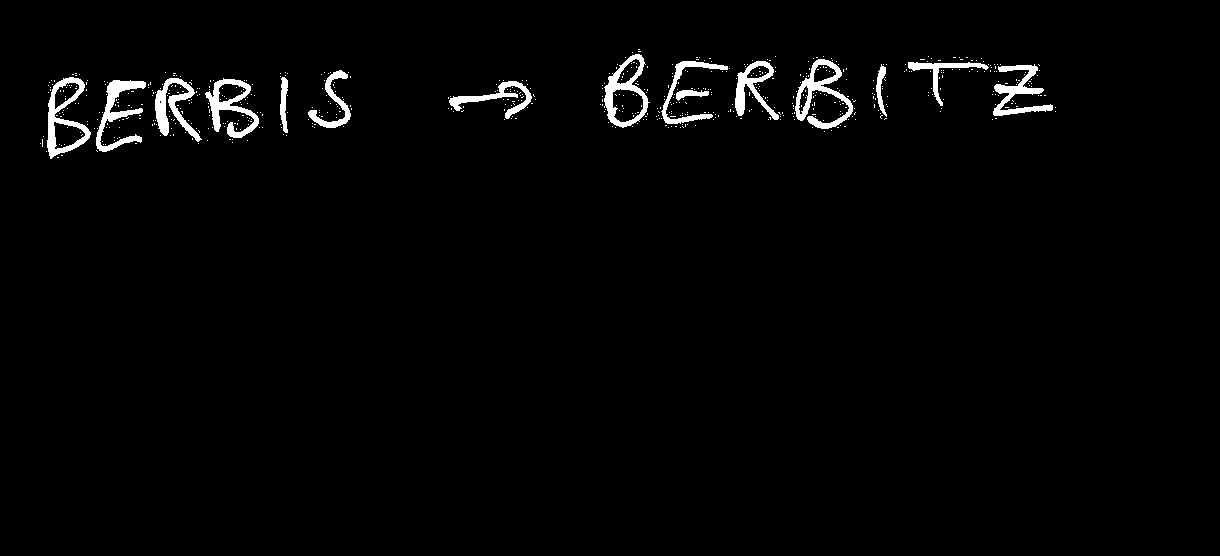 BERBIS → BERBITZ